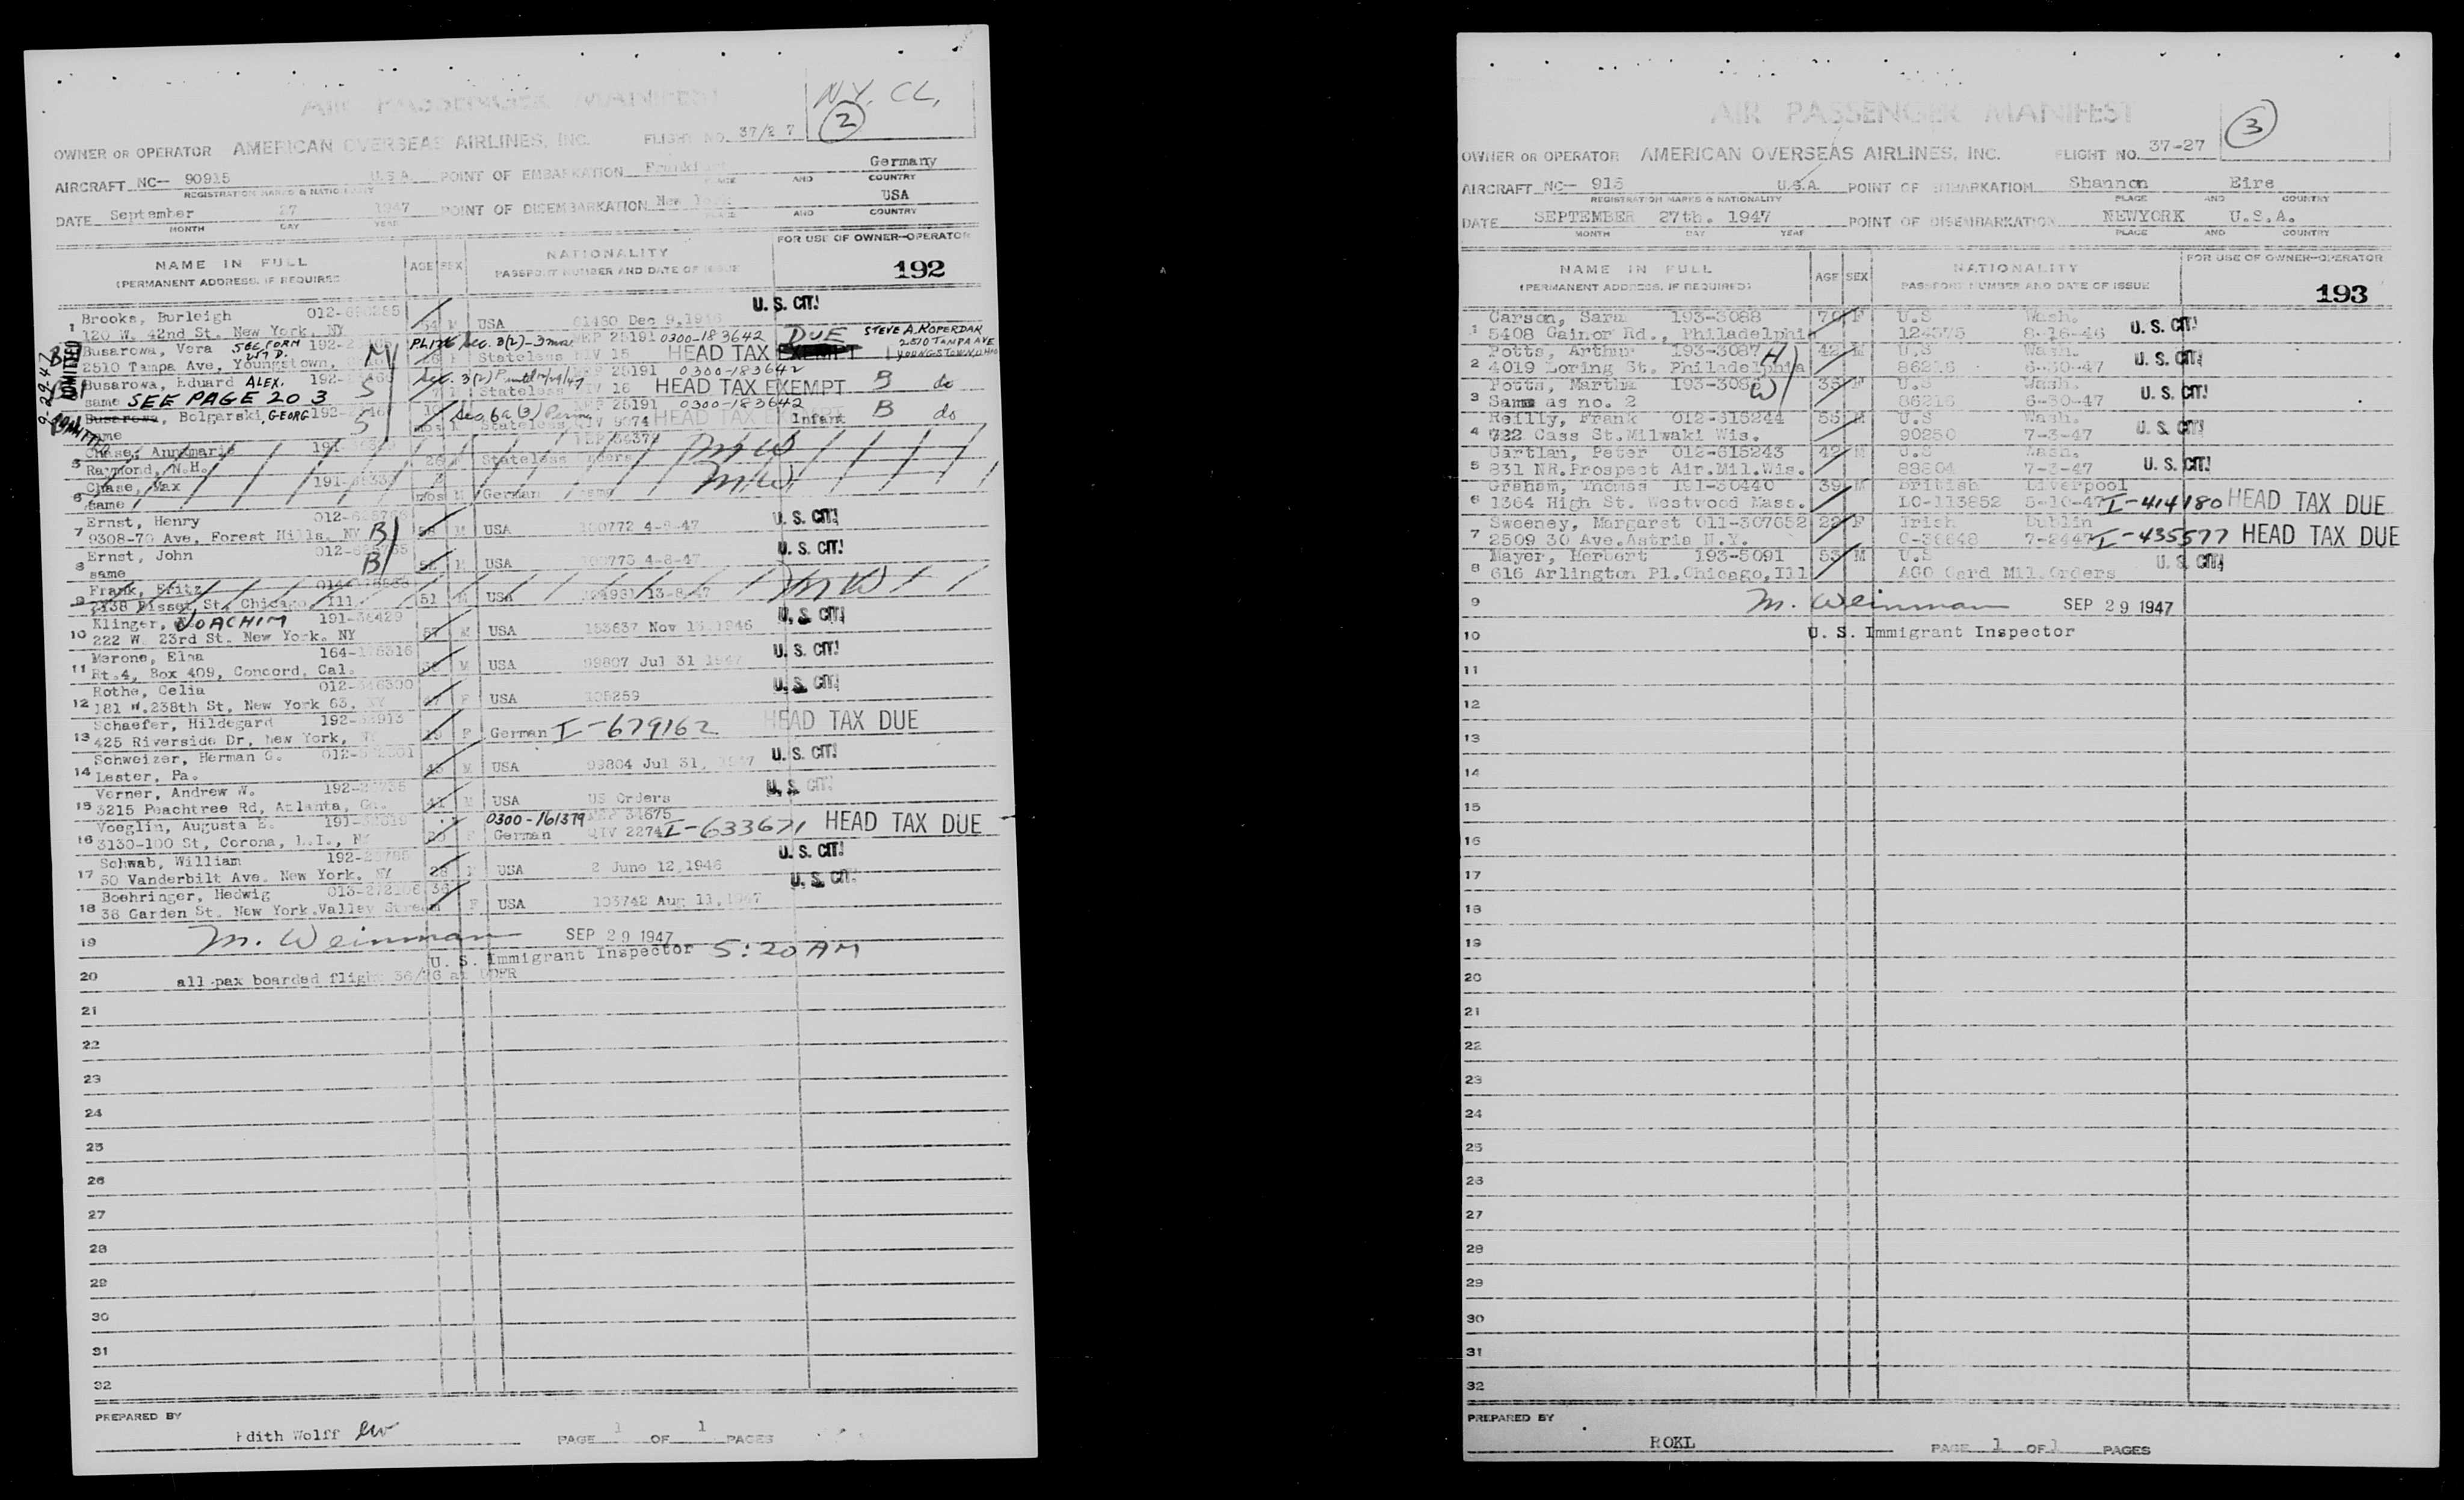 AIR PASSENGER MANIFEST
N.Y. CL,
2
OWNER OR OPERATOR AMERICAN OVERSEAS AIRLINES, INC. FLIGHT NO. 37/27
AIRCRAFT NC— 90915 U.S.A. POINT OF EMBARKATION Germany
REGISTRATION MARKS & NATIONALITY PLACE AND COUNTRY
DATE September 27 1947 POINT OF DISEMBARKATION New York USA
MONTH DAY YEAR PLACE AND COUNTRY
NAME IN FULL
(PERMANENT ADDRESS, IF REQUIRED)
AGE SEX
NATIONALITY
PASSPORT NUMBER AND DATE OF ISSUE
FOR USE OF OWNER-OPERATOR
192
1 Brooks, Burleigh 012- 54 M USA Dec 9, U. S. CIT!
120 W. 42nd St. New York, NY
Busarowa, Vera SEE FORM 192- M Sec. 3(2)- 25191 0300-183642 DUE STEVE A. ROPERDAK
2510 Tampa Ave, Youngstown, Stateless HEAD TAX EXEMPT 2510 TAMPA AVE YOUNGSTOWN, OHIO
Busarowa, Eduard ALEX. 192- S Sec. 3(2) 25191 0300-183642
same SEE PAGE 203 Stateless 16 HEAD TAX EXEMPT B do
Busarowa, Bolgarski, GEORG 192- S Sec, 6a(3) 25191 0300-183642 B do
same Stateless QIV 9074 HEAD TAX Infant
ADMITTED
5 Chase, Annemarie 191- Stateless MW
Raymond, N.H.
6 Chase, Max 191- mos M German same MW
same
7 Ernst, Henry 012- B M USA 100772 4-8-47 U. S. CIT!
9308-70 Ave, Forest Hills, NY
8 Ernst, John 012- B M USA 4-8-47 U. S. CIT!
same
9 Frank, Fritz 51 M USA 13-8-47 MW
2138 Bissel St, Chicago Ill
10 Klinger, JOACHIM 191-36429 57 M USA 153637 Nov 1946 U. S. CIT!
222 W. 23rd St. New York, NY
11 Merone, Elna 164- M USA 99807 Jul 31 1947 U. S. CIT!
Rt.4, Box 409, Concord, Cal.
12 Rothe, Celia 012-346300 47 F USA 105259 U. S. CIT!
181 W.238th St, New York 63, NY
13 Schaefer, Hildegard 192- F German I-679162 HEAD TAX DUE
425 Riverside Dr, New York, NY
14 Schweizer, Herman G. 012- M USA 99804 Jul 31, 1947 U. S. CIT!
Lester, Pa.
15 Verner, Andrew W. 192- 41 M USA US Orders U. S. CIT!
3215 Peachtree Rd, Atlanta, Ga.
16 Voeglin, Augusta E. 191- 0300-161379 34675
3130-100 St, Corona, L.I., NY German QIV 2274 I-633671 HEAD TAX DUE
17 Schwab, William 192- 28 M USA 2 June 12,1946 U. S. CIT!
50 Vanderbilt Ave. New York, NY
18 Boehringer, Hedwig 013-272106 36 F USA 103742 Aug 11, 1947 U. S. CIT!
36 Garden St. New York.Valley Stream
19 M. Weinman SEP 29 1947
U. S. Immigrant Inspector 5:20 AM
20 all pax boarded flight 36/26 at
21
22
23
24
25
26
27
28
29
30
31
32
PREPARED BY
Edith Wolff ew PAGE 1 OF 1 PAGES
AIR PASSENGER MANIFEST
3
OWNER OR OPERATOR AMERICAN OVERSEAS AIRLINES, INC. FLIGHT NO. 37-27
AIRCRAFT NC— 915 U.S.A. POINT OF EMBARKATION Shannon Eire
REGISTRATION MARKS & NATIONALITY PLACE AND COUNTRY
DATE SEPTEMBER 27th. 1947 POINT OF DISEMBARKATION NEWYORK U.S.A.
MONTH DAY YEAR PLACE AND COUNTRY
NAME IN FULL
(PERMANENT ADDRESS, IF REQUIRED)
AGE SEX
NATIONALITY
PASSPORT NUMBER AND DATE OF ISSUE
FOR USE OF OWNER-OPERATOR
193
1 Carson, Sara 193-3088 70 F U.S Wash.
5408 Gainor Rd., Philadelphia 124375 8-16-46 U. S. CIT!
2 Potts, Arthur 193-3087 H 42 M U.S Wash.
4019 Loring St. Philadelphia 86216 6-30-47 U. S. CIT!
3 Potts, Martha W 35 F U.S Wash.
Same as no. 2 86216 6-30-47 U. S. CIT!
4 Reilly, Frank 012-315244 55 M U.S Wash.
722 Cass St.Milwaki Wis. 90250 7-3-47 U. S. CIT!
5 Gartlan, Peter 012-615243 42 M U.S Wash.
831 NR.Prospect Air.Mil.Wis. 88804 7-3-47 U. S. CIT!
6 Graham, Thomas 191-30440 39 M British Liverpool
1364 High St. Westwood Mass. LO-113852 5-10-47 I-414180 HEAD TAX DUE
7 Sweeney, Margaret 011-307652 22 F Irish Dublin
2509 30 Ave.Astria N.Y. C-36648 7-2447 I-435577 HEAD TAX DUE
8 Mayer, Herbert 193-5091 53 M U.S U. S. CIT!
616 Arlington Pl.Chicago,Ill AGO Card Mil.Orders
9 M. Weinman SEP 29 1947
10 U. S. Immigrant Inspector
11
12
13
14
15
16
17
18
19
20
21
22
23
24
25
26
27
28
29
30
31
32
PREPARED BY
ROKL PAGE 1 OF 1 PAGES